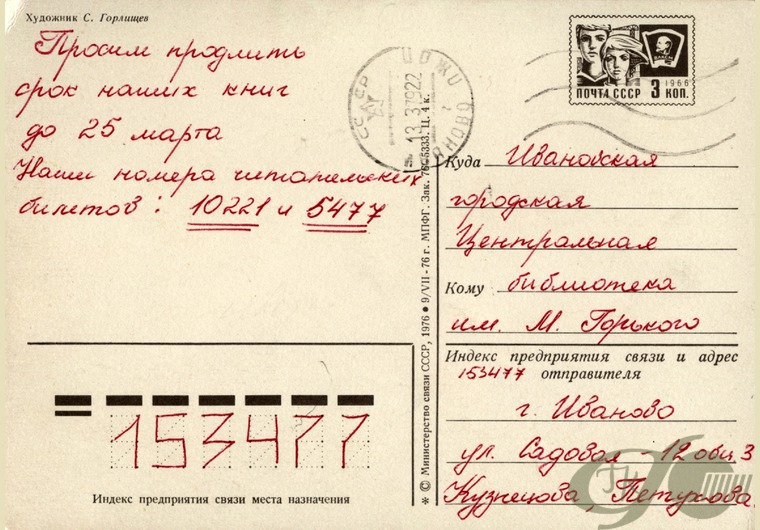 Художник С. Горлищев
Просим продлить
срок наших книг
до 25 марта
Наши номера читательских
билетов: 10221 и 5477
153477
Индекс предприятия связи места назначения
СССР
13.3 79 22
ИВАНОВО
ПОЧТА СССР 3 КОП.
1966
Куда Ивановская
городская
Центральная
Кому библиотека
им. М. Горького
Индекс предприятия связи и адрес
153477 отправителя
г. Иваново
ул. Садовая - 12 общ. 3
Кузнецова, Петухова
* © Министерство связи СССР, 1976 • 9/VII-76 г. МПФГ. Зак. 76-5333. Ц. 4 к.